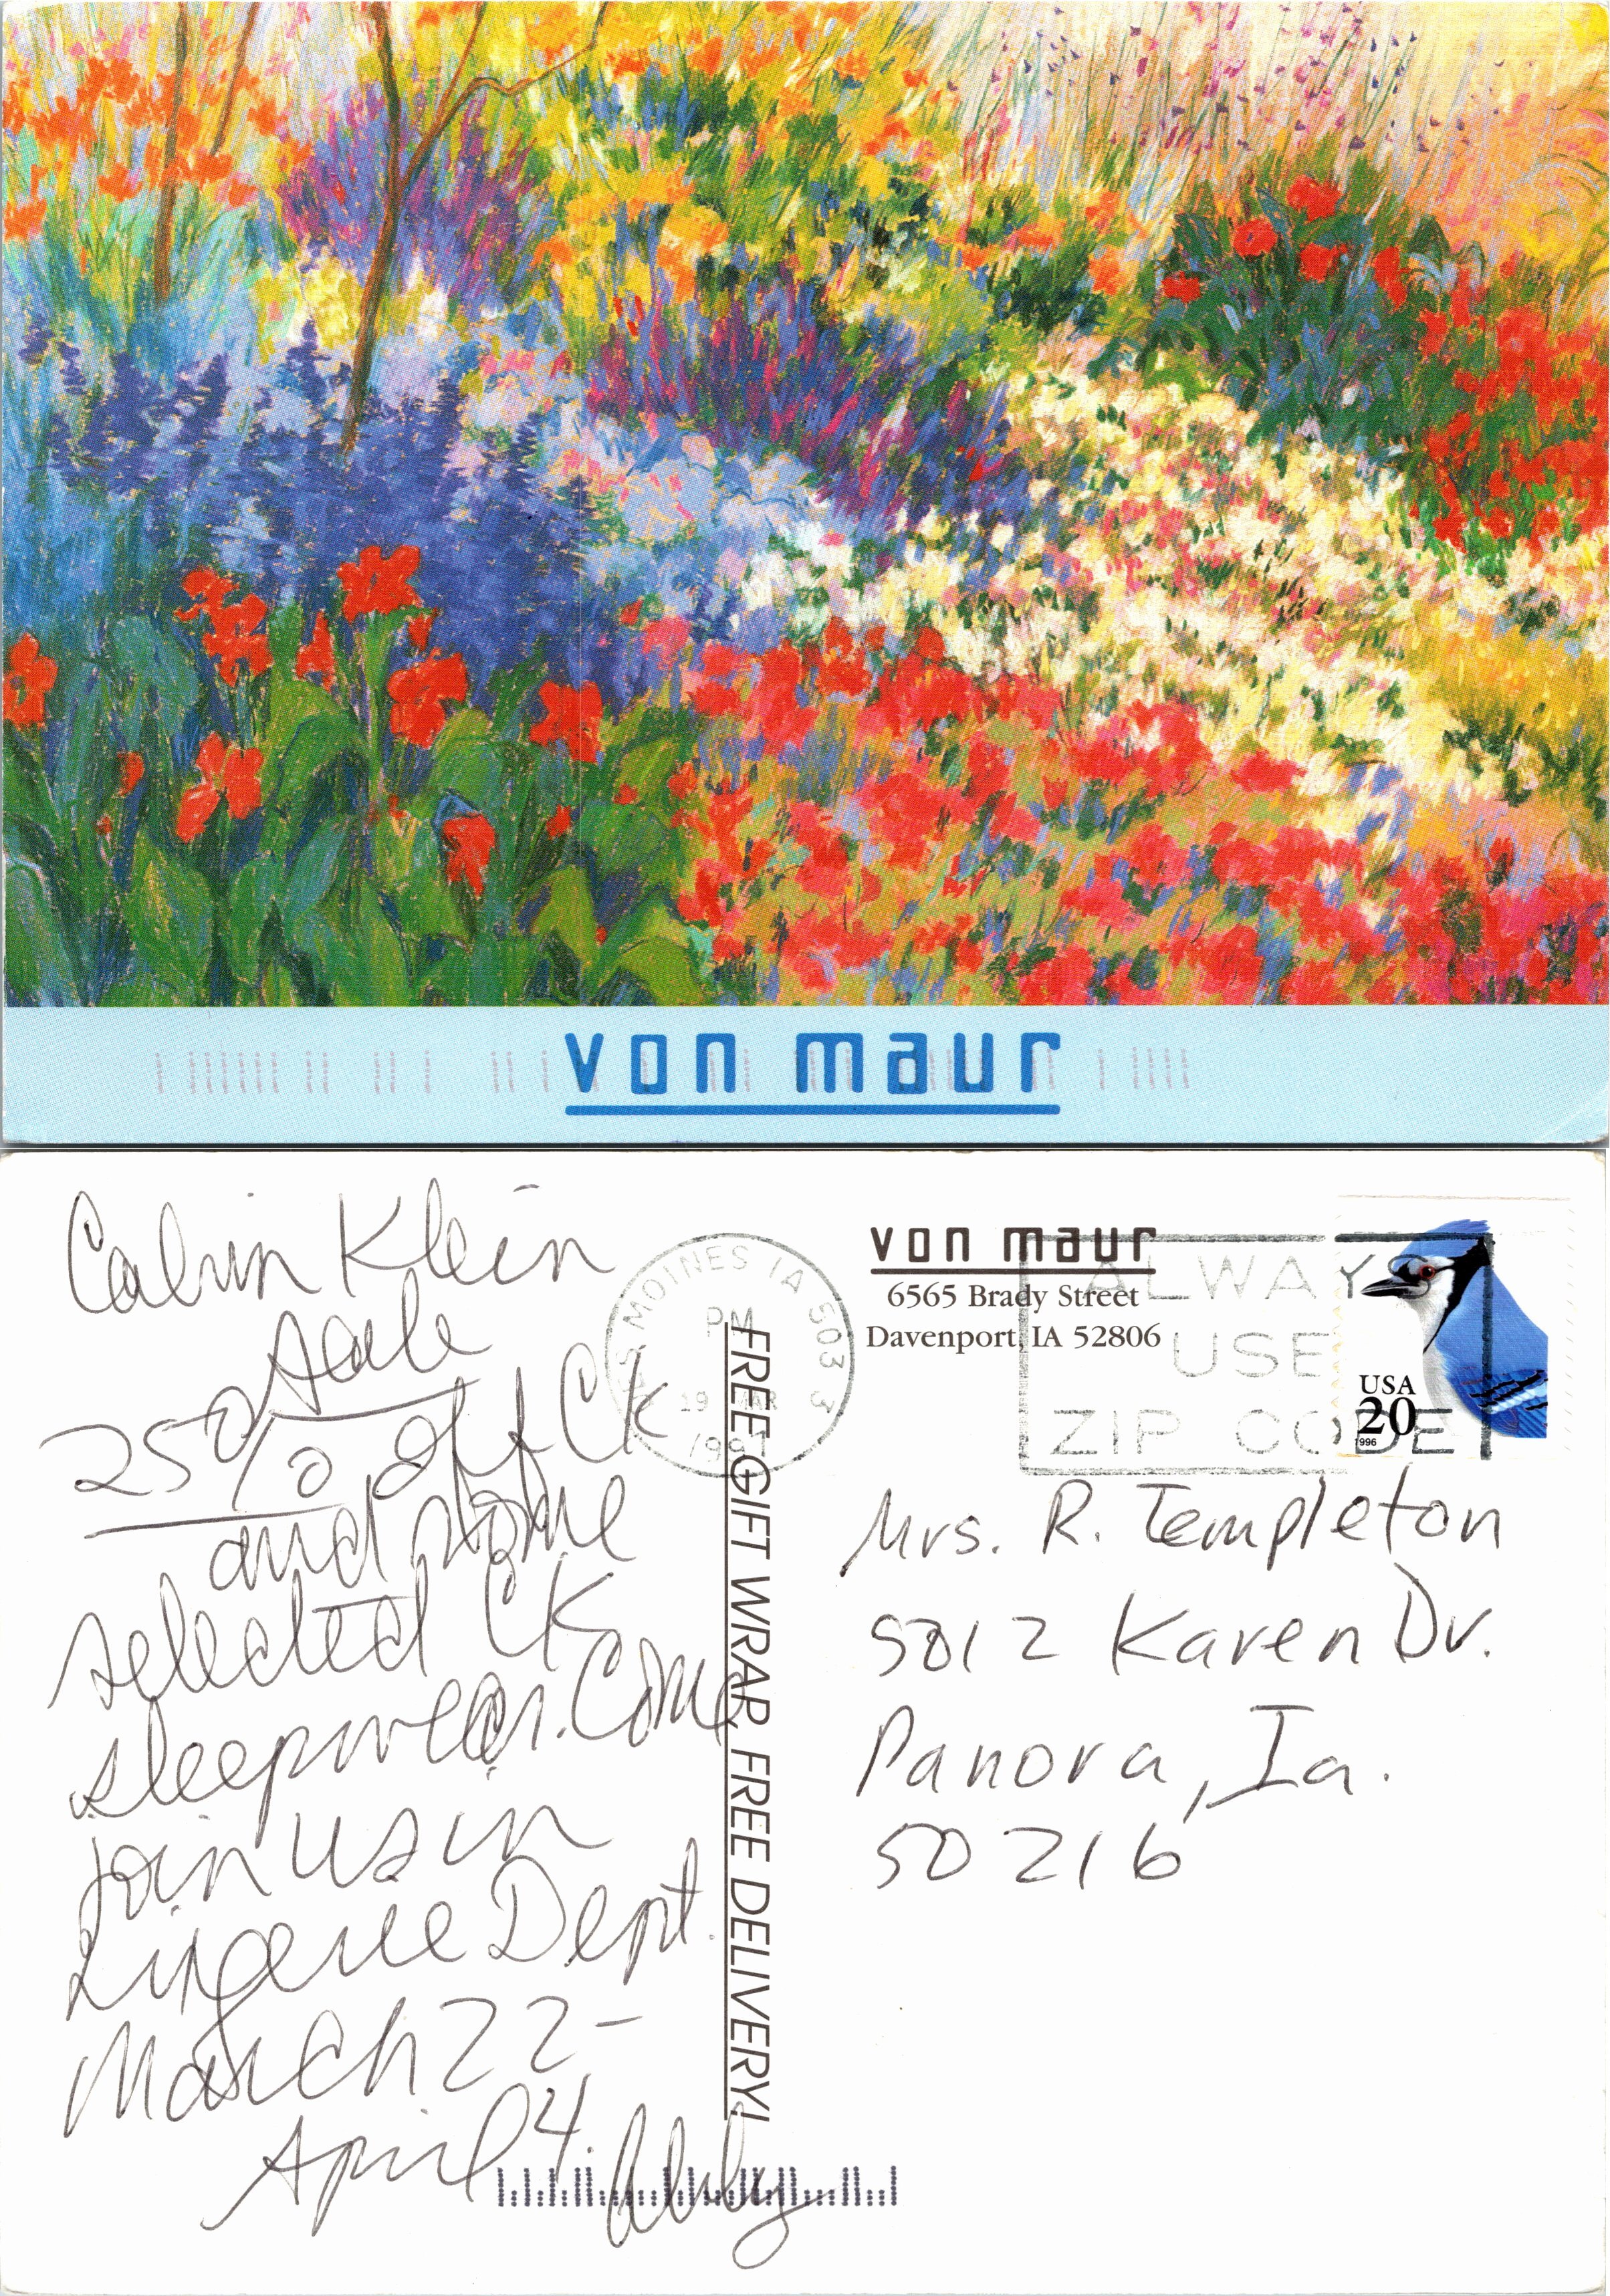 von maur
Calvin Klein
sale
25% off CK
and some
selected CK
sleepwear. Come
join us in
Lingerie Dept.
March 22-
April 4.
FREE GIFT WRAP, FREE DELIVERY!
DES MOINES IA 503
PM
19 MAR
von maur
6565 Brady Street
Davenport, IA 52806
ALWAYS
USE
ZIP CODE
USA
20
1996
Mrs. R. Templeton
5012 Karen Dr.
Panora, Ia.
50216